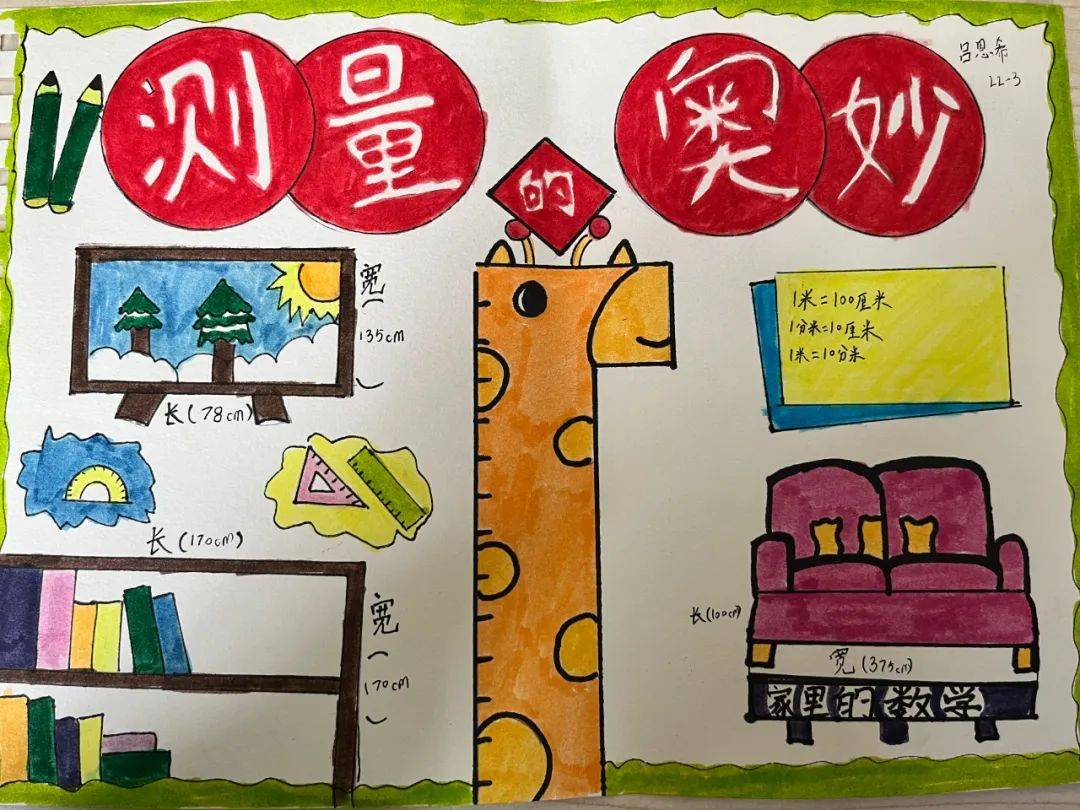 测量的奥妙
吕思希
22-3
宽(135cm)
长(78cm)
1米=100厘米
1分米=10厘米
1米=10分米
长(170cm)
宽(170cm)
长(100cm)
宽(375cm)
家里的数学